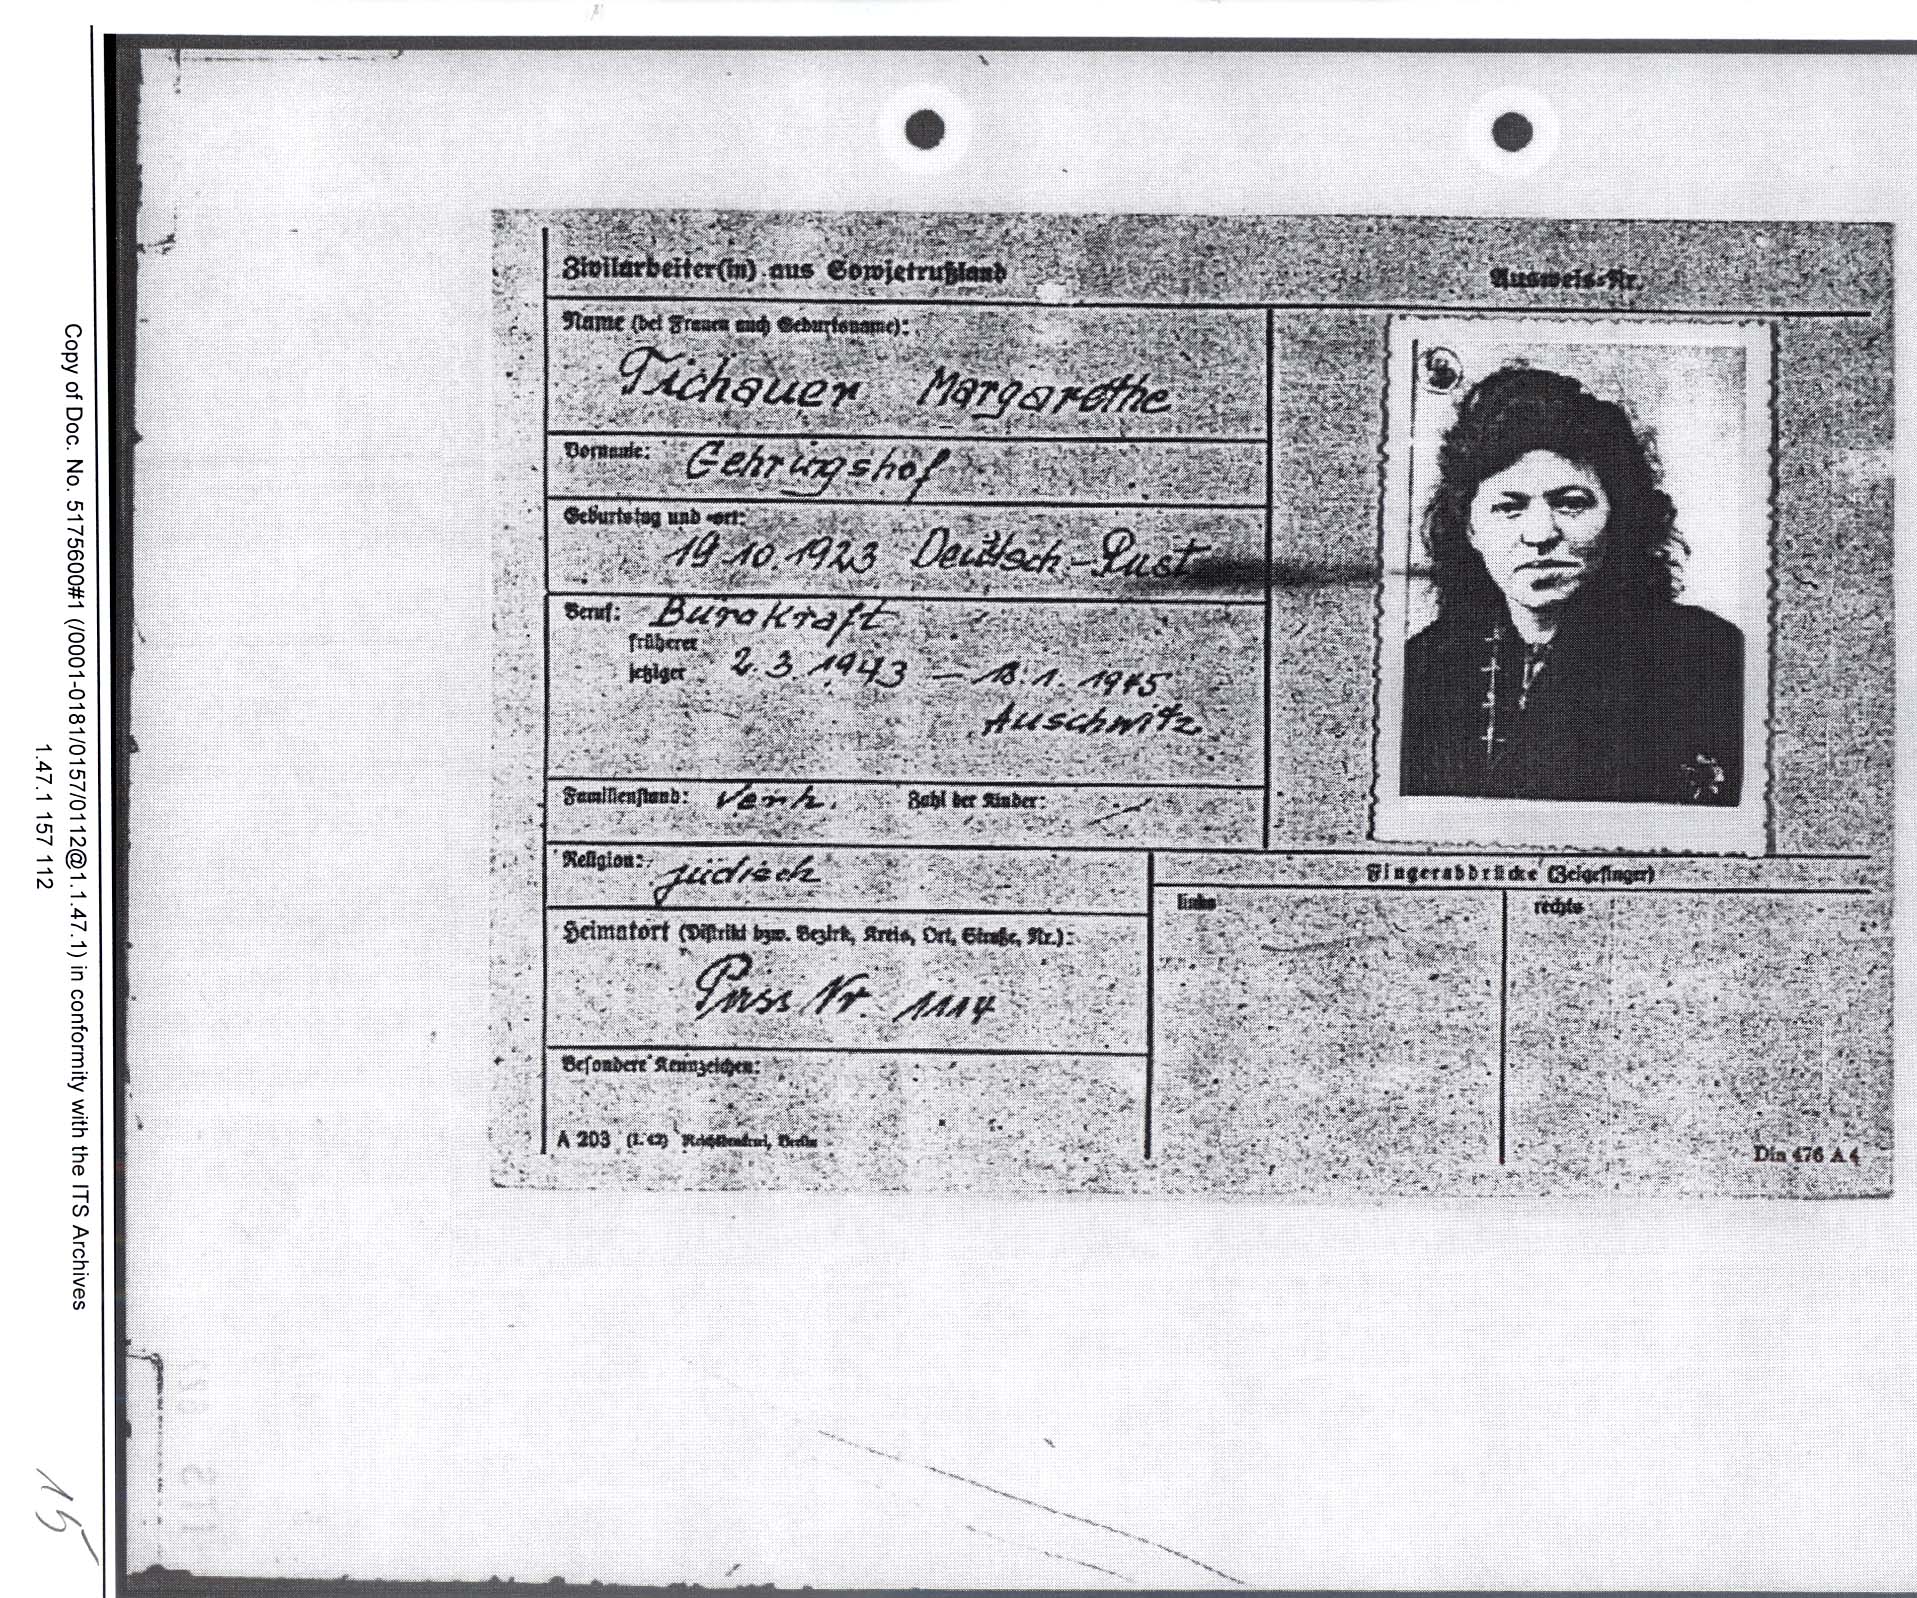 Copy of Doc. No. 5175600#1 (/0001-0181/0157/0112@1.1.47.1) in conformity with the ITS Archives
1.47.1 157 112
Zivilarbeiter(in) aus Sowjetrußland
Ausweis-Nr.
Name (bei Frauen auch Geburtsname):
Tichauer Margarethe
Vorname: Gehringshof
Geburtstag und -ort:
19.10.1923 Deutsch-Pust
Beruf: Bürokraft
früherer
jetziger 2.3.1943 – 18.1.1945
Auschwitz
Familienstand: verh. Zahl der Kinder: —
Religion: jüdisch
Fingerabdrücke (Zeigefinger)
links
rechts
Heimatort (Distrikt bzw. Bezirk, Kreis, Ort, Straße, Nr.):
Pass Nr. 1114
Besondere Kennzeichen:
A 203 (1. 42) Reichsdruckerei, Berlin
Din 476 A 4
15